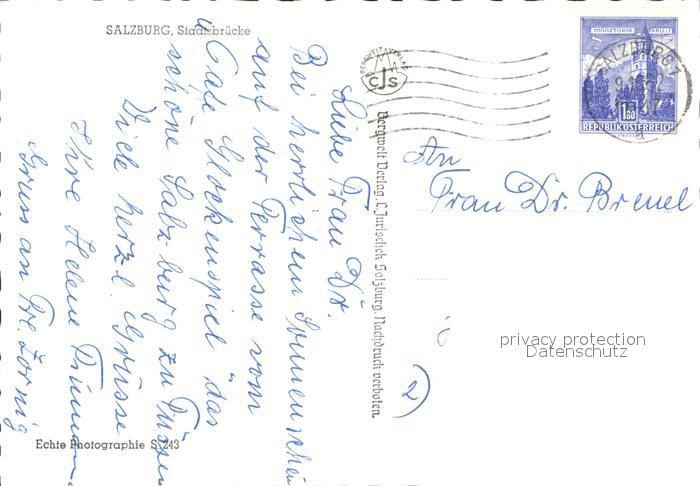 SALZBURG, Staatsbrücke
Liebe Frau Dr.
Bei herrlichem Sonnenschein
auf der Terrasse vom
"Cafe Glockenspiel" das
schöne Salzburg zu Füßen
Viele herzl. Grüsse
Ihre Helene
Gruss an Frl. Zornig
Echte Photographie S 243
Bergwelt Verlag C. Jurischek Salzburg. Nachdruck verboten.
BERGWELT VERLAG
CJS
MÜNZTURM HALL I. T.
1.80
REPUBLIK ÖSTERREICH
SALZBURG 2
An
Frau Dr. Breuel
2)
privacy protection
Datenschutz